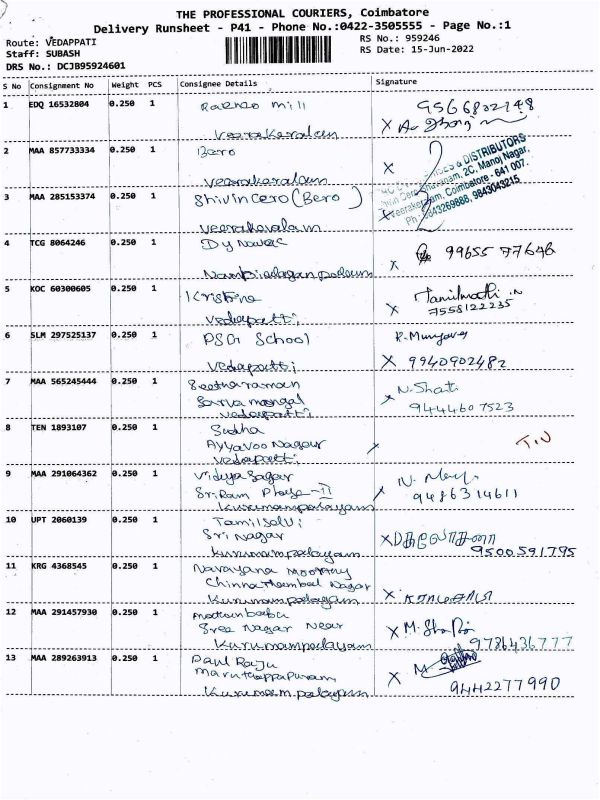 THE PROFESSIONAL COURIERS, Coimbatore
Delivery Runsheet - P41 - Phone No.:0422-3505555 - Page No.:1
Route: VEDAPPATI
RS No.: 959246
Staff: SUBASH
RS Date: 15-Jun-2022
DRS No.: DCJB95924601
S No Consignment No Weight PCS Consignee Details Signature
1 EDQ 16532804 0.250 1 mill 9566802148
Veerakeralam X
2 MAA 857733334 0.250 1 Bero
veerakeralam X
& DISTRIBUTORS
2C, Manoj Nagar,
Coimbatore - 641 007.
9843269888, 9843043215
3 MAA 285153374 0.250 1 Shivin cero (Bero)
veerakeralam
4 TCG 8064246 0.250 1 99655 77646
X
5 KOC 60300605 0.250 1 Kristina Tamilmathi .N
vedapatti X 7558122235
6 SLM 297525137 0.250 1 PSG School
vedapatti X 9940902482
7 MAA 565245444 0.250 1 Seetharaman N. Shati
Sarva mangal X 9444607523
vedapatti
8 TEN 1893107 0.250 1 Sudha
Ayyavoo Nagar X
vedapatti
9 MAA 291064362 0.250 1 Vidya Sagar
Sri Ram Phase-II X 9486314611
Kurumampalayam
10 UPT 2060139 0.250 1 Tamil Selvi
Sri Nagar X
Kurumampalayam 9500591795
11 KRG 4368545 0.250 1 Narayana Moorthy
Chinna Thambal Nagar
Kurumampalayam X
12 MAA 291457930 0.250 1
Sree Nagar Near X M.
Kurumampalayam 9786436777
13 MAA 289263913 0.250 1 Paul Raju
X M
Kurumampalayam 9442277990